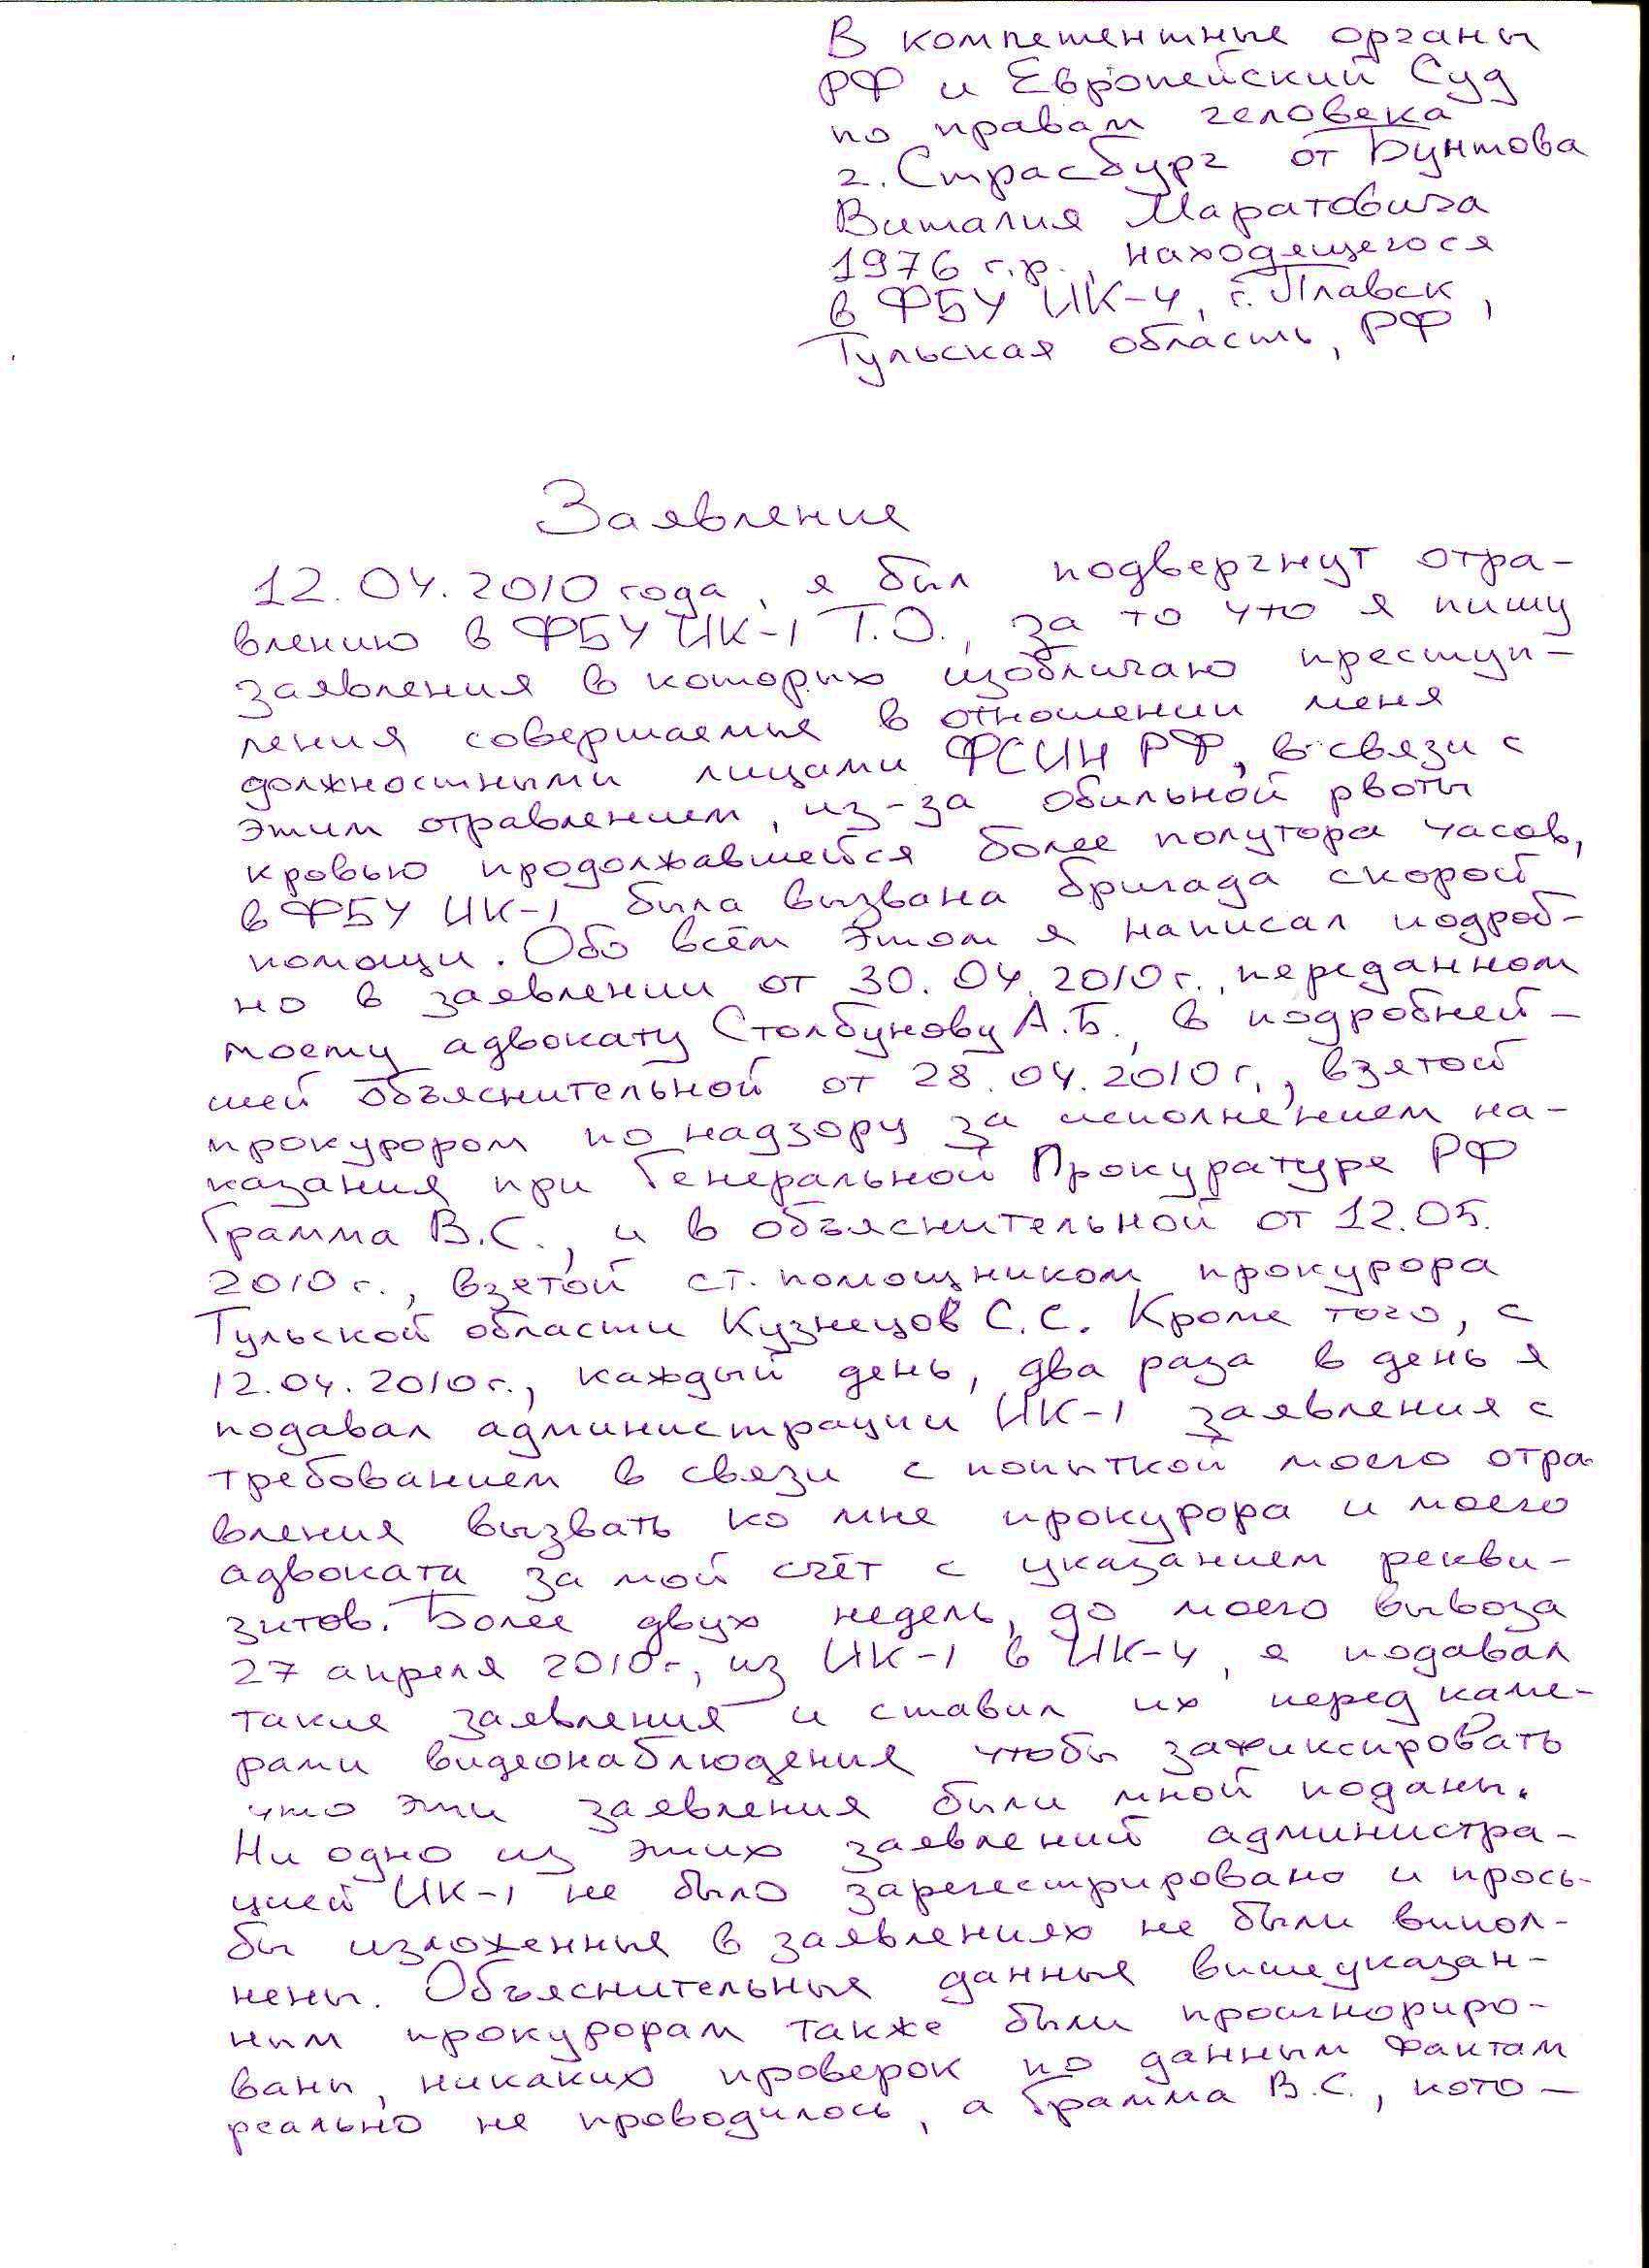 В компетентные органы
РФ и Европейский Суд
по правам человека
г. Страсбург от Бунтова
Виталия Маратовича
1976 г.р., находящегося
в ФБУ ИК-4, г. Плавск,
Тульская область, РФ
Заявление
12.04.2010 года, я был подвергнут отра-
влению в ФБУ ИК-1 Т.О., за то что я пишу
заявления в которых изобличаю преступ-
ления совершаемые в отношении меня
должностными лицами ФСИН РФ, в связи с
этим отравлением, из-за обильной рвоты
кровью продолжавшейся более полутора часов,
в ФБУ ИК-1 была вызвана бригада скорой
помощи. Обо всём этом я написал подроб-
но в заявлении от 30.04.2010г., переданном
моему адвокату Столбунову А.Б., в подробней-
шей объяснительной от 28.04.2010г., взятой
прокурором по надзору за исполнением на-
казания при Генеральной Прокуратуре РФ
Грамма В.С., и в объяснительной от 12.05.
2010г., взятой ст. помощником прокурора
Тульской области Кузнецов С.С. Кроме того, с
12.04.2010г., каждый день, два раза в день я
подавал администрации ИК-1 заявления с
требованием в связи с попыткой моего отра-
вления вызвать ко мне прокурора и моего
адвоката за мой счёт с указанием рекви-
зитов. Более двух недель, до моего вывоза
27 апреля 2010г., из ИК-1 в ИК-4, я подавал
такие заявления и ставил их перед каме-
рами видеонаблюдения чтобы зафиксировать
что эти заявления были мной поданы.
Ни одно из этих заявлений администра-
цией ИК-1 не было зарегестрировано и прось-
бы изложенные в заявлениях не были выпол-
нены. Объяснительные данные вышеуказан-
ным прокурорам также были проигнориро-
ваны, никаких проверок по данным фактам
реально не проводилось, а Грамма В.С., кото-